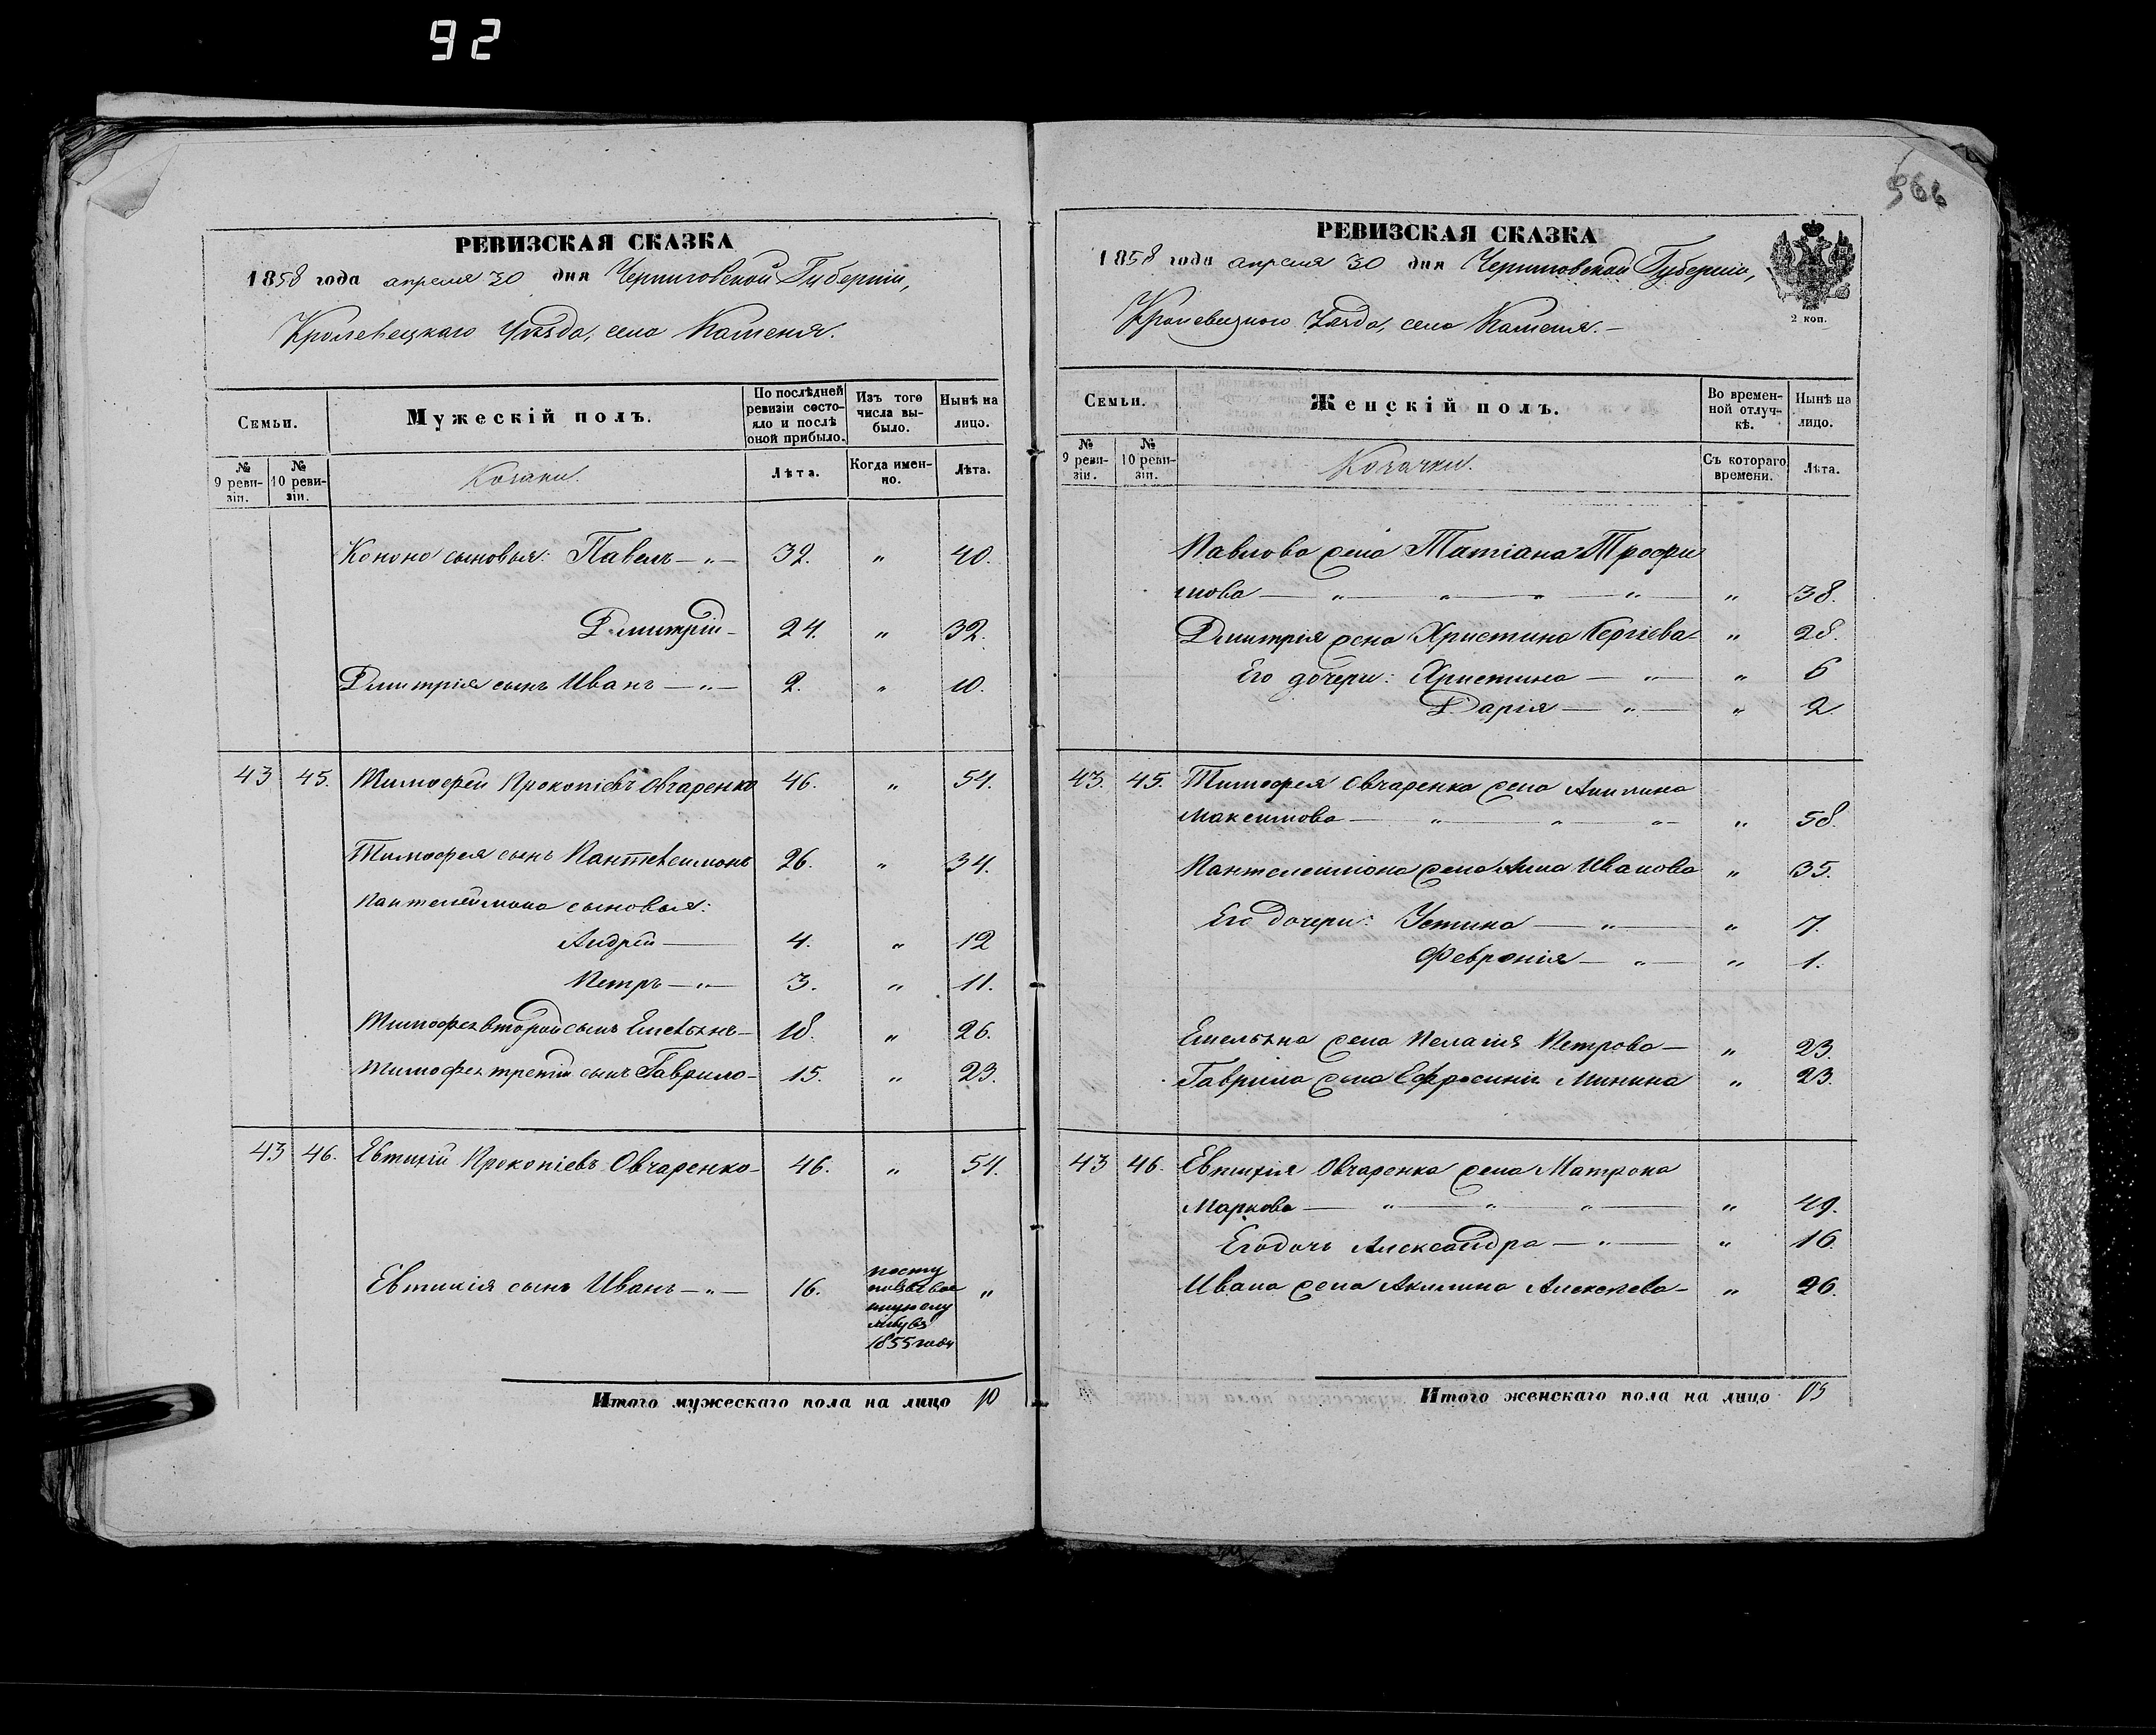 92
РЕВИЗСКАЯ СКАЗКА
1858 года апреля 30 дня Черниговской Губерніи,
Кролевецкаго Уѣзда, села Каменя.
Семьи.
Мужескій полъ.
По послѣдней ревизіи состояло и послѣ оной прибыло.
Изъ того числа выбыло.
Нынѣ на лицо.
№ 9 ревизіи.
№ 10 ревизіи.
Козаки.
Лѣта.
Когда именно.
Лѣта.
Конона сыновья: Павелъ —„— 32. „ 40.
Дмитрій — 24. „ 32.
Дмитрія сынъ Иванъ —„— 2. „ 10.
43 45. Тимофей Прокопіевъ Овчаренко 46. „ 54.
Тимофея сынъ Пантелеимонъ 26. „ 34.
Пантелеймона сыновья:
Андрей — 4. „ 12
Петръ —„— 3. „ 11.
Тимофея второй сынъ Емельянъ — 18. „ 26.
Тимофея третій сынъ Гаврило — 15. „ 23.
43 46. Евтихій Прокопіевъ Овчаренко — 46. „ 54.
Евтихія сынъ Иванъ —„— 16. „
1855 года
Итого мужескаго пола на лицо 10
966
РЕВИЗСКАЯ СКАЗКА
1858 года апреля 30 дня Черниговской Губерніи,
Кролевецкаго Уѣзда, села Каменя. —
2 коп.
Семьи.
Женскій полъ.
Во временной отлучкѣ.
Нынѣ на лицо.
№ 9 ревизіи.
№ 10 ревизіи.
Козачки.
Съ котораго времени.
Лѣта.
Павлова жена Татіана Трофи
мова — „ — „ — „ — „ — „ 38.
Дмитрія жена Христина Сергіева — „ 28.
Его дочери: Христина — „ — „ 6
Дарія — „ — „ 2
43. 45. Тимофея Овчаренка жена Акилина
Максимова — „ — „ — „ — „ 58.
Пантелеимона жена Анна Иванова „ 35.
Его дочери: Устина — „ — „ 7.
Февронія — „ — „ 1.
Емельяна жена Пелагія Петрова — „ 23.
Гаврила жена Ефросинія Минина „ 23.
43 46. Евтихія Овчаренка жена Матрона
Маркова — „ — „ — „ — „ 49.
Его дочь Александра —„— „ 16.
Ивана жена Акилина Алексѣева — „ 26.
Итого женскаго пола на лицо 13